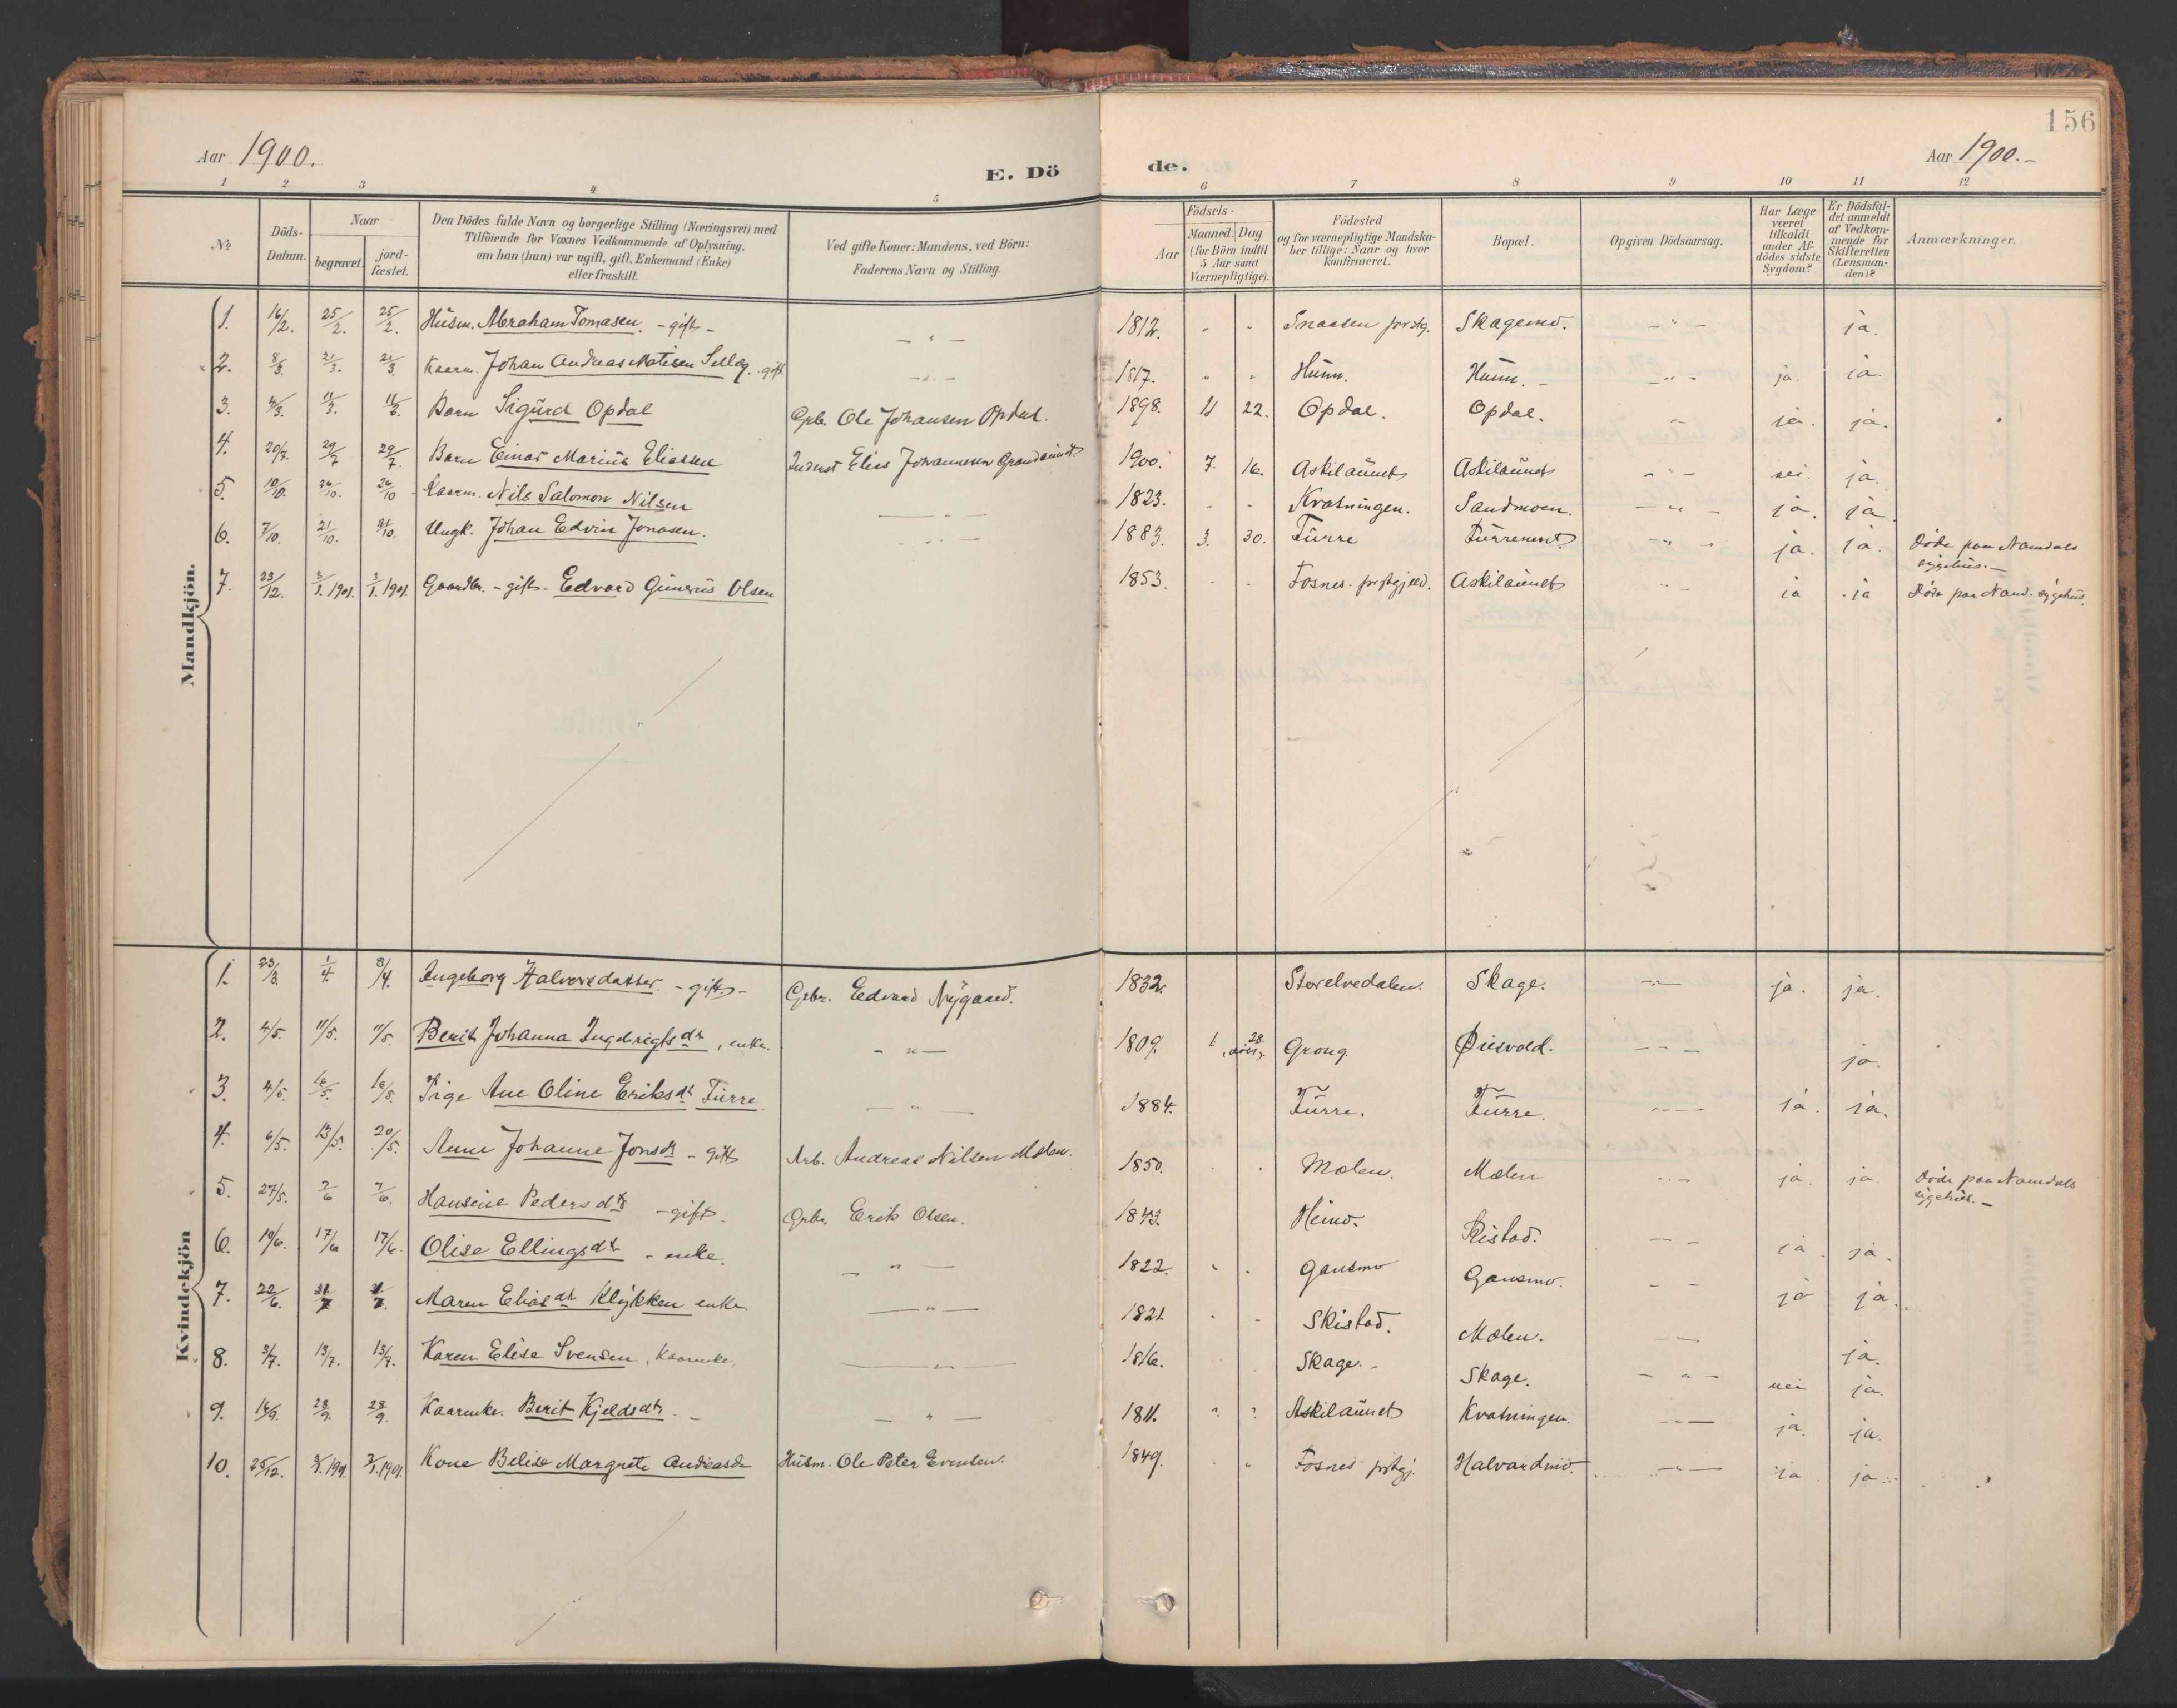 156
Aar 1900.
E. Dö de.
Aar 1900.-
1 2 3 4 5 6 7 8 9 10 11 12
№
Döds-
Datum.
Naar
begravet.
jord-
fæstet.
Den Dödes fulde Navn og borgerlige Stilling (Næringsvei) med
Tilföiende for Voxnes Vedkommende af Oplysning,
om han (hun) var ugift, gift, Enkemand (Enke)
eller fraskilt.
Ved gifte Koner: Mandens, ved Börn:
Faderens Navn og Stilling.
Födsels-
Aar
Maaned. Dag.
(for Börn indtil
5 Aar samt
Værnepligtige).
Födested
og for værnepligtige Mandska-
ber tillige: Naar og hvor
konfirmeret.
Bopæl.
Opgiven Dödsaarsag.
Har Læge
været
tilkaldt
under Af-
dödes sidste
Sygdom?
Er Dödsfal-
det anmeldt
af Vedkom-
mende for
Skifteretten
(Lensman-
den)?
Anmærkninger.
Mandkjön.
1. 16/2. 25/2. 25/2. Husm. Abraham Tomasen. - gift - - " - 1812. " " Snaasen prstg. Skagemo. - " - ja.
2. 8/3. 21/3. 21/3. Kaarm. Johan Andreas Matisen Selleg. gift - " - 1817. " " Hunn. Hunn. - - " - ja. ja.
3. 4/3. 11/3. 11/3. Barn Sigurd Opdal Grb. Ole Johansen Opdal. 1898. 11 22. Opdal. Opdal. ja. ja.
4. 20/7. 29/7 29/7. Barn Einar Marius Eliassen Inderst Elias Johannesen Grandaunet 1900. 7. 16. Askilaunet Askilaunet - " - nei. ja.
5. 10/10. 24/10. 24/10 Kaarm. Nils Salomon Nilsen - " - 1823. - - Kvatningen. Sandmoen. - " - ja. ja.
6. 7/10. 21/10. 21/10. Ungk. Johan Edvin Jonasen. - " - 1883. 3. 30. Furre Furrenest. - " - ja. ja. Døde paa Namdals
sygehus. -
7. 23/12. 3/1. 1901. 3/1. 1901. Gaardbr. - gift - Edvard Gunerius Olsen 1853. - - Fosnes - prstgjeld. Askilaunet " ja ja Døde paa Namd. sygehus.
Kvindekjön
1. 23/3. 1/4. 8/4. Ingeborg Halvorsdatter. - gift - Grbr. Edvard Nygaard. 1832. Storelvedalen. Skage. - " - ja. ja.
2. 4/5. 11/5. 11/5. Berit Johanna Ingebrigtsdt, enke. - " - 1809. 1 28. Grong. Øiesvold. - - - ja.
3. 4/5. 10/5. 10/5. Pige Ane Oline Eriksdt Furre - " - 1884. Furre. Furre. - - - ja. ja.
4. 6/5. 13/5. 20/5. Anne Johanne Jonsdt - gift Arb. Andreas Nilsen Mælen. 1850. . . Mælen. Mælen - - - ja ja. Døde paa Namdals
sygehus. -
5. 27/5. 7/6 7/6. Hansine Pedersdtr - gift. Grbr. Erik Olsen. 1843. Heimo. Ristad. - - - ja. ja.
6. 10/6. 17/6 17/6. Olise Ellingsdt. - enke. - " - 1822. " . Gansmo Gansmo. - - ja ja.
7. 22/6. Maren Eliasdt Klykken. enke. - " - 1821. . - Skistad. Mælen. - - ja.
8. 3/7. 13/7. 13/7. Karen Elise Svensen, Kaarenke. - " - 1816. Skage. - Skage. - " - nei ja.
9. 16/9. 28/9. 28/9. Kaarenke. Berit Kjeldsdtr. - - " - 1811. " " Askilaunet Kvatningen. - - ja. ja.
10. 25/12. 3/1. 1901. 3/1. 1901. Kone Belise Margrete Andreasdr Husm. Ole Peter Evensen. 1849. . " Fosnes prstgj. Halvardmo. - " - ja. ja.